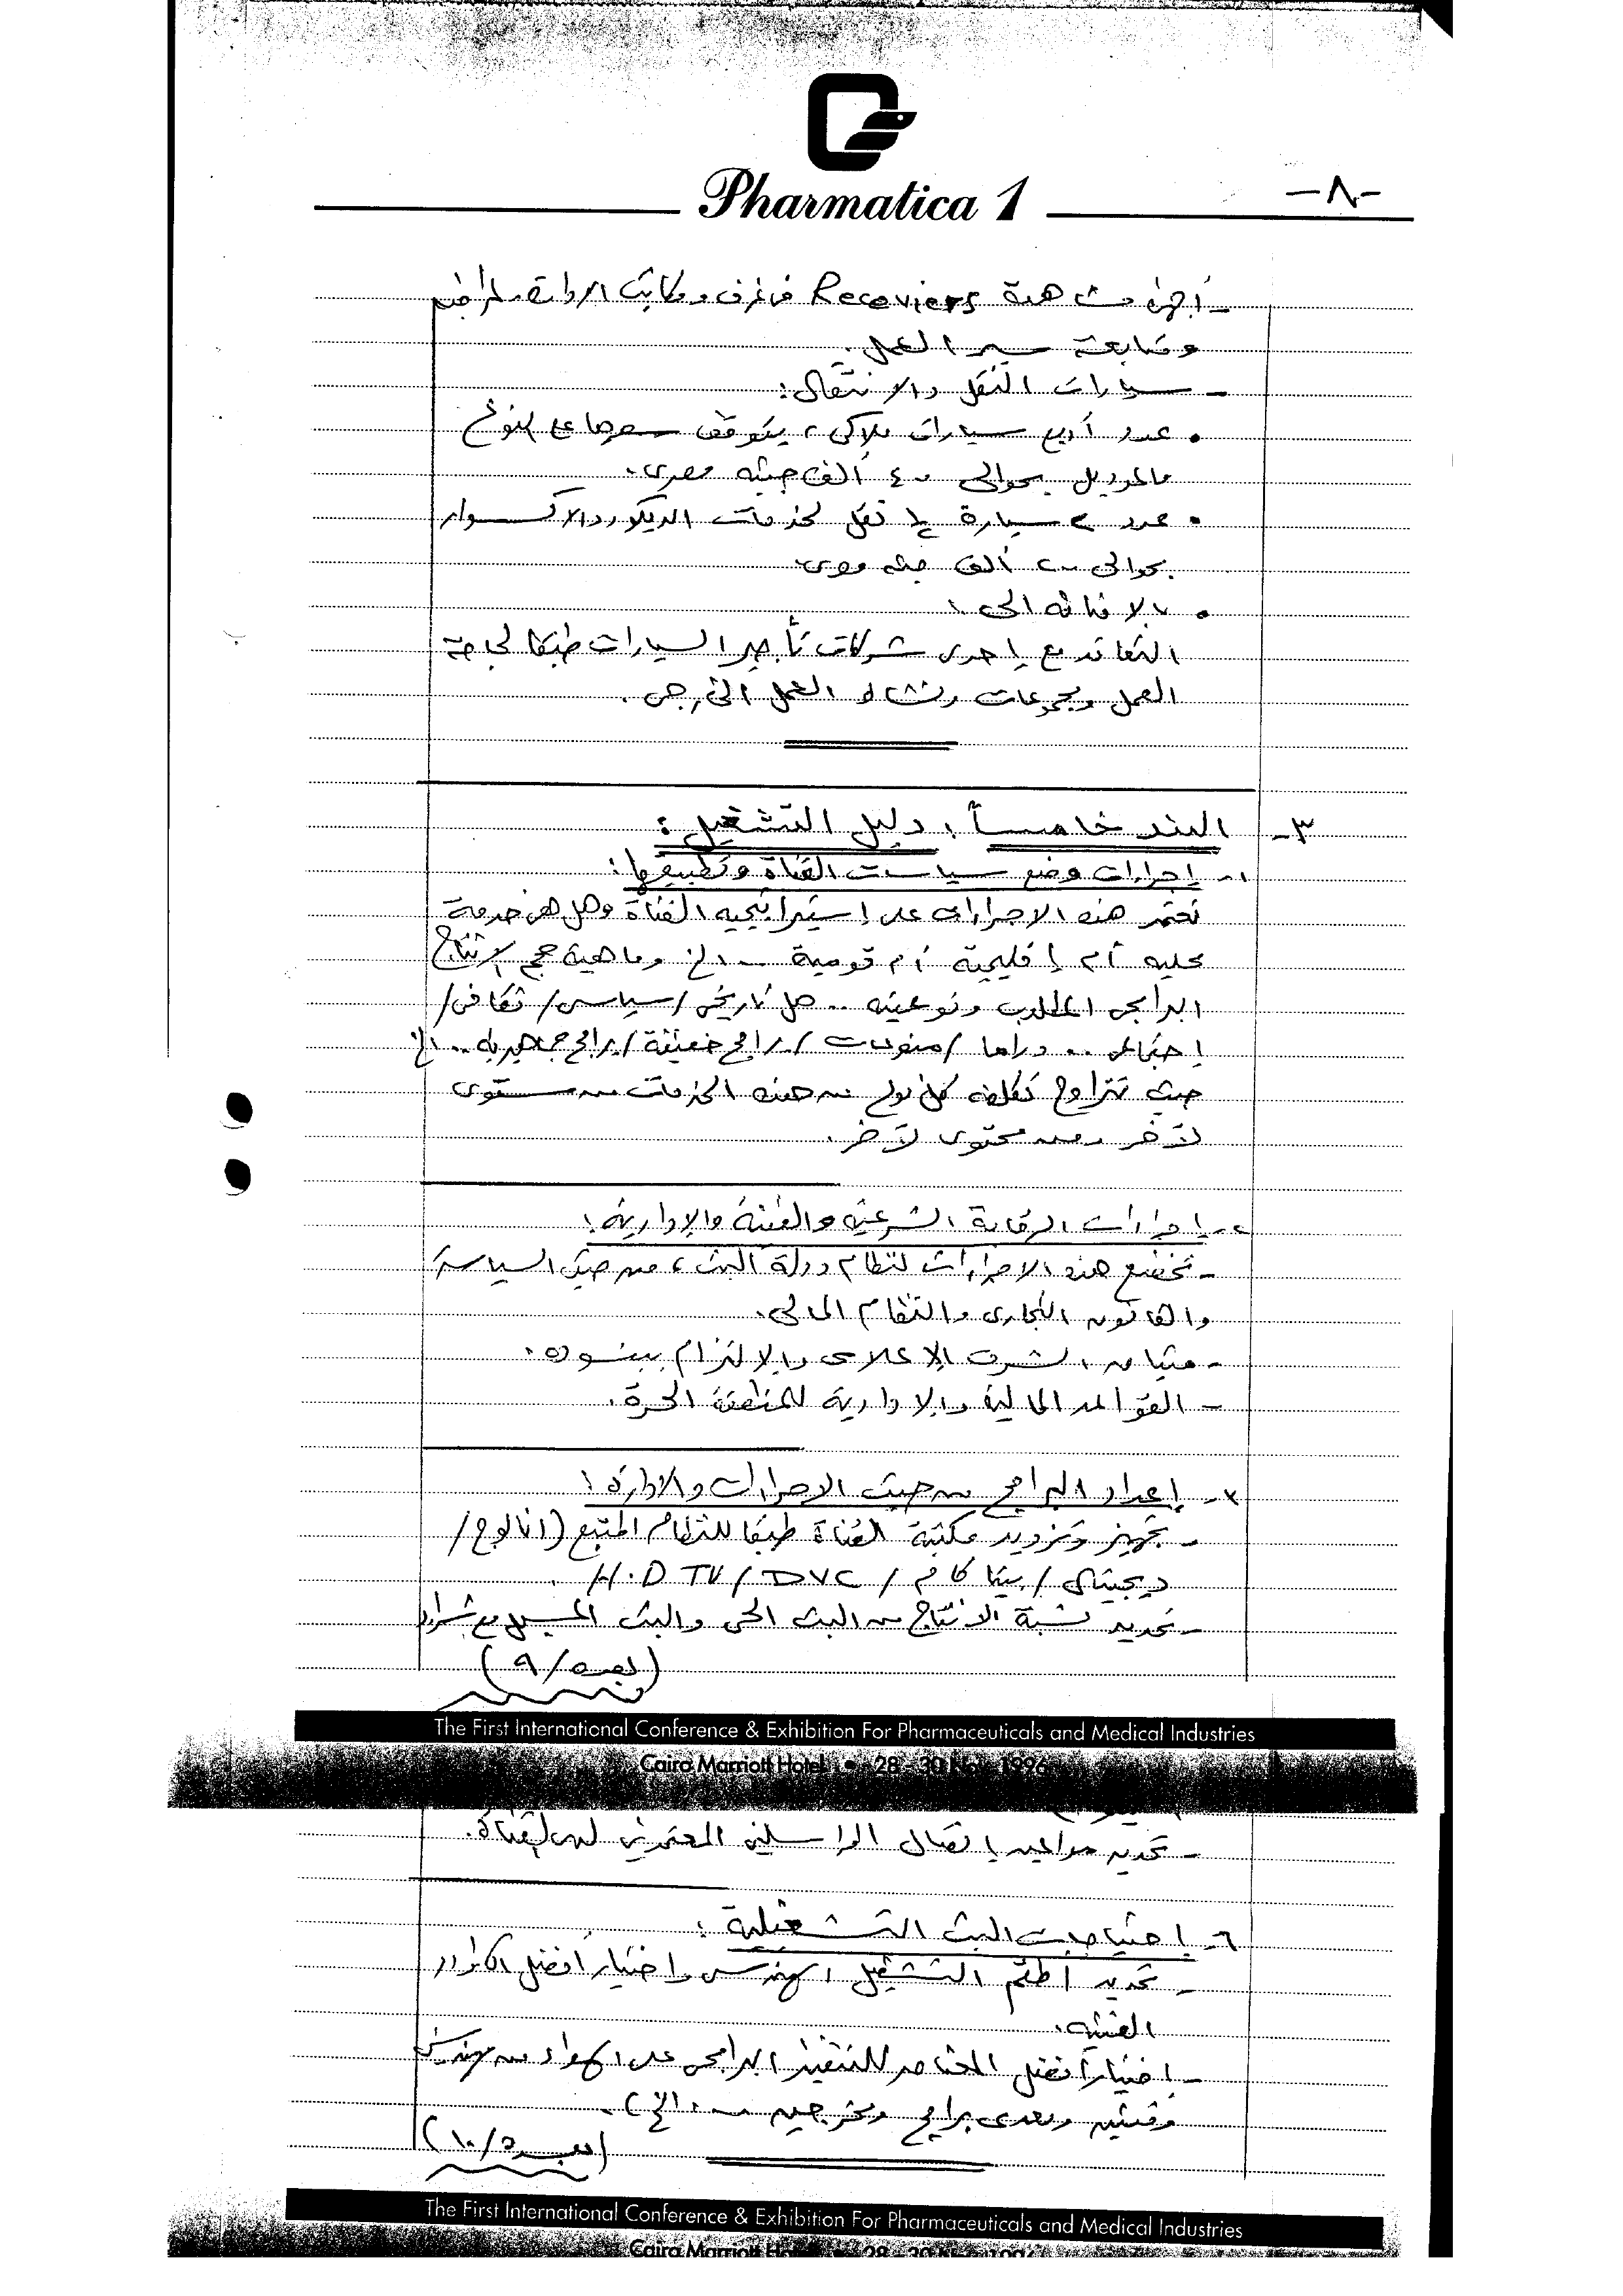 Pharmatica 1
-٨-
- أجهزة مشاهدة Receviers فى غرف ومكاتب الادارة لمراجعة
ومتابعة سير العمل.
- سيارات النقل والانتقال:
• عدد أربع سيارات ملاكى، يتوقف سعرها على النوع
والموديل بحوالى ٤٠٠ ألف جنيه مصرى.
• عدد ٢ سيارة ½ نقل لخدمات الديكور والاكسسوار
بحوالى ٢٠٠ ألف جنيه مصرى
• بالاضافة الى:
التعاقد مع إحدى شركات تأجير السيارات طبقا لحاجة
العمل ومجموعات ونشاط العمل الخارجى.
٣- البند خامساً: دليل التشغيل:
١- إجراءات وضع سياسات القناة وتطبيقها:
تعتمد هذه الاجراءات على إستيراتيجية القناة وهل هى خدمة
محلية أم إقليمية أم قومية ... الخ وماهية حجم الانتاج
البرامجى المطلوب ونوعيته .. هل تاريخى/سياسى/ثقافى/
إجتماعى .. دراما/منوعات/برامج خفيفة/برامج جماهيرية .. الخ
حيث تتراوح تكلفة كل نوع من هذه الخدمات من مستوى
لآخر ومن محتوى لآخر.
٢- إجراءات الرقابة الشرعية والفنية والإدارية:
- تخضع هذه الاجراءات لنظام دولة البث، من حيث السياسة
والقانون التجارى والنظام المالى.
- ميثاق الشرف الإعلامى والإلتزام ببنوده.
- القواعد المالية والادارية للمنطقة الحرة.
٣- إعداد البرامج من حيث الاجراءات والادارة:
- تجهيز وتزويد مكتبة القناة طبقا للنظام المتبع (انالوج/
ديجيتال/بيتا كام/DVC/H.D TV.
- تحديد نسبة الانتاج من البث الحى والبث المسجل مع شراء
(بعده/٩)
The First International Conference & Exhibition For Pharmaceuticals and Medical Industries
Cairo Marriott Hotel • 28 - 30 Nov 1996
- تحديد مواعيد إتصال المراسلين المعتمدين لدى القناة.
٦- إحتياجات البث التشغيلية:
- تحديد أطقم التشغيل الهندسى وإختيار أفضل الكوادر
الفنية.
- إختيار أفضل العناصر للتنفيذ البرامجى على الهواء من مهندسين
وفنيين ومعدى برامج ومخرجين ... الخ).
(بعده/١٠)
The First International Conference & Exhibition For Pharmaceuticals and Medical Industries
Cairo Marriott Hotel • 28 - 30 Nov 1996